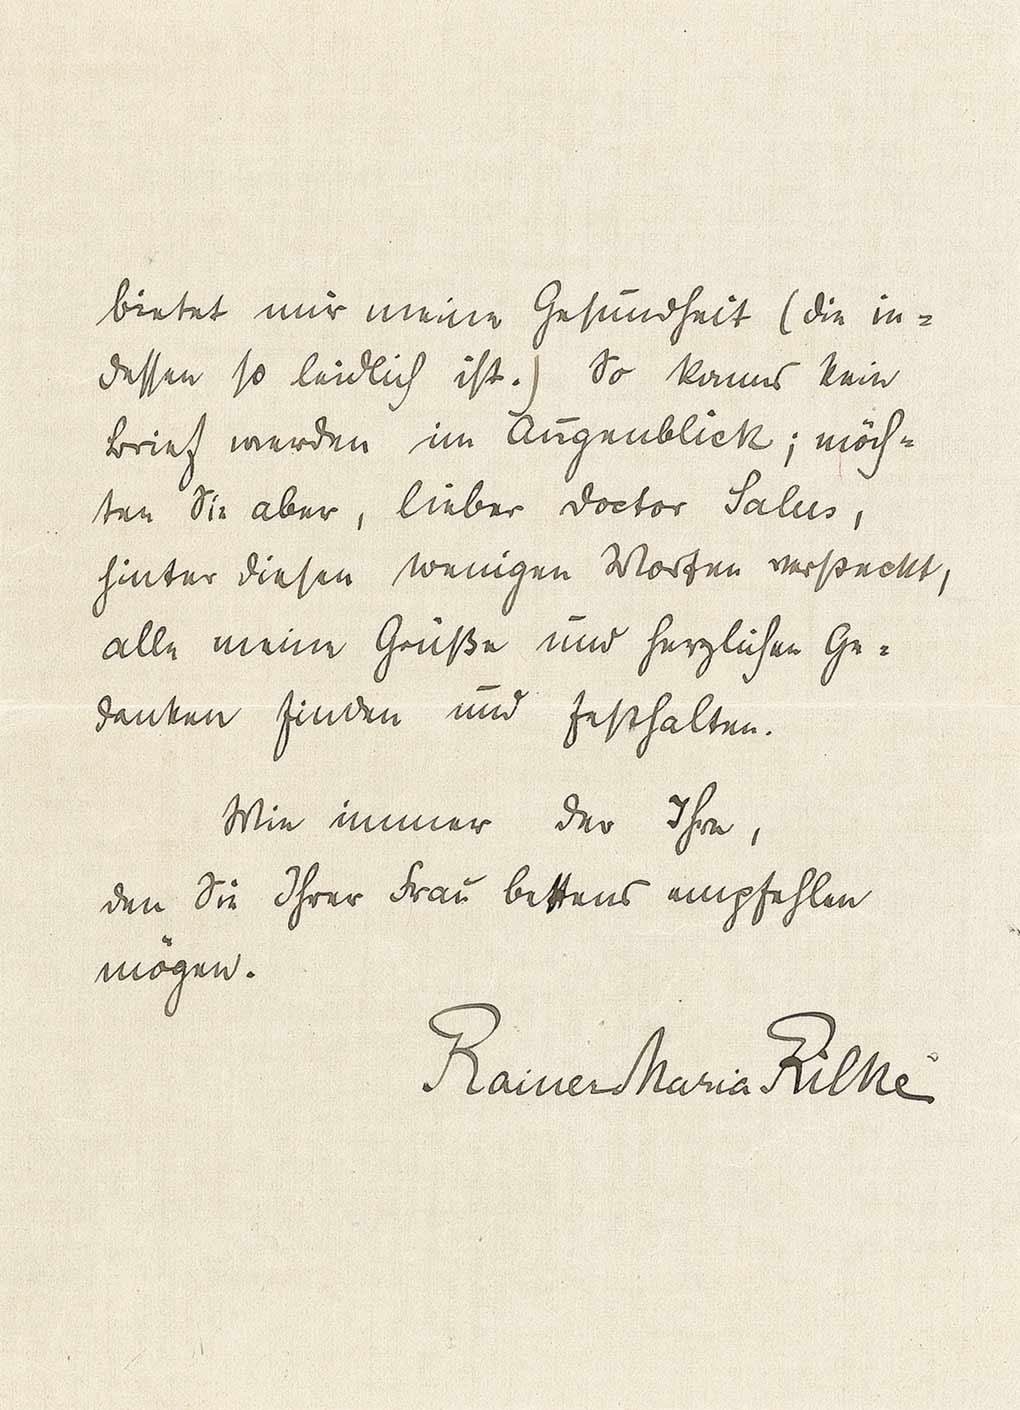 bietet mir meine Gesundheit (die in=
dessen so leidlich ist.) So kanns kein
Brief werden im Augenblick; möch=
ten Sie aber, lieber Doctor Salus,
hinter diesen wenigen Worten versteckt,
alle meine Grüße und herzlichen Ge=
danken finden und festhalten.
Wie immer der Ihre,
den Sie Ihrer Frau bestens empfehlen
mögen.
Rainer Maria Rilke